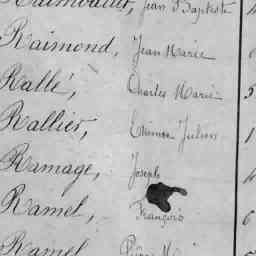 Jean Baptiste
Raimond, Jean Marie
Rallé, Charles Marie 5
Rallier, Etienne Julien 1
Ramage, Joseph 4
Ramel, François 6
Ramel